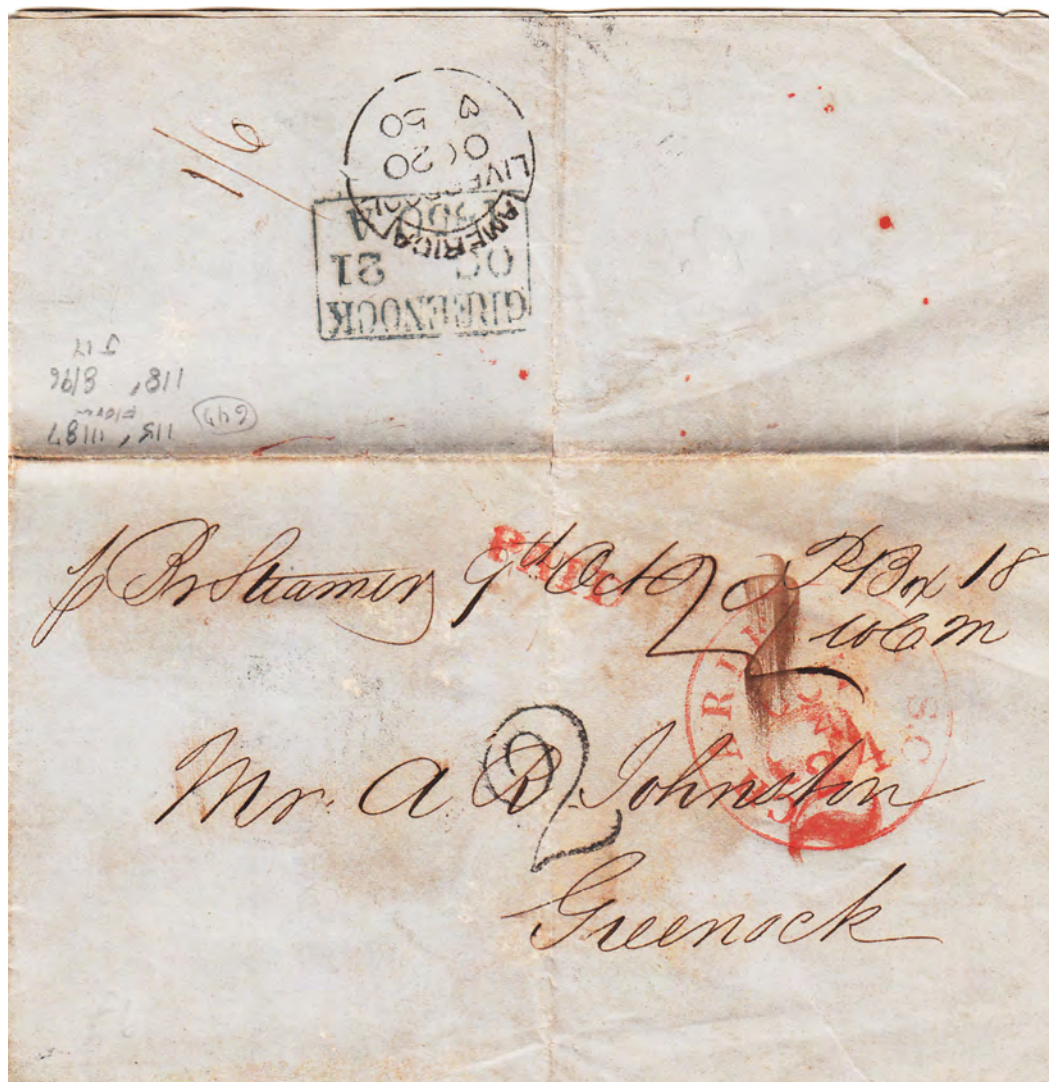 1/6
AMERICA
LIVERPOOL
OC 20
50
GREENOCK
OC 21
1850
A
115, 11187
118, 8/96
J 17
647
p Br Steamer 9th Oct
PAID
P Box 18
W C M
2
Mr. A. B. Johnston
Greenock
SC